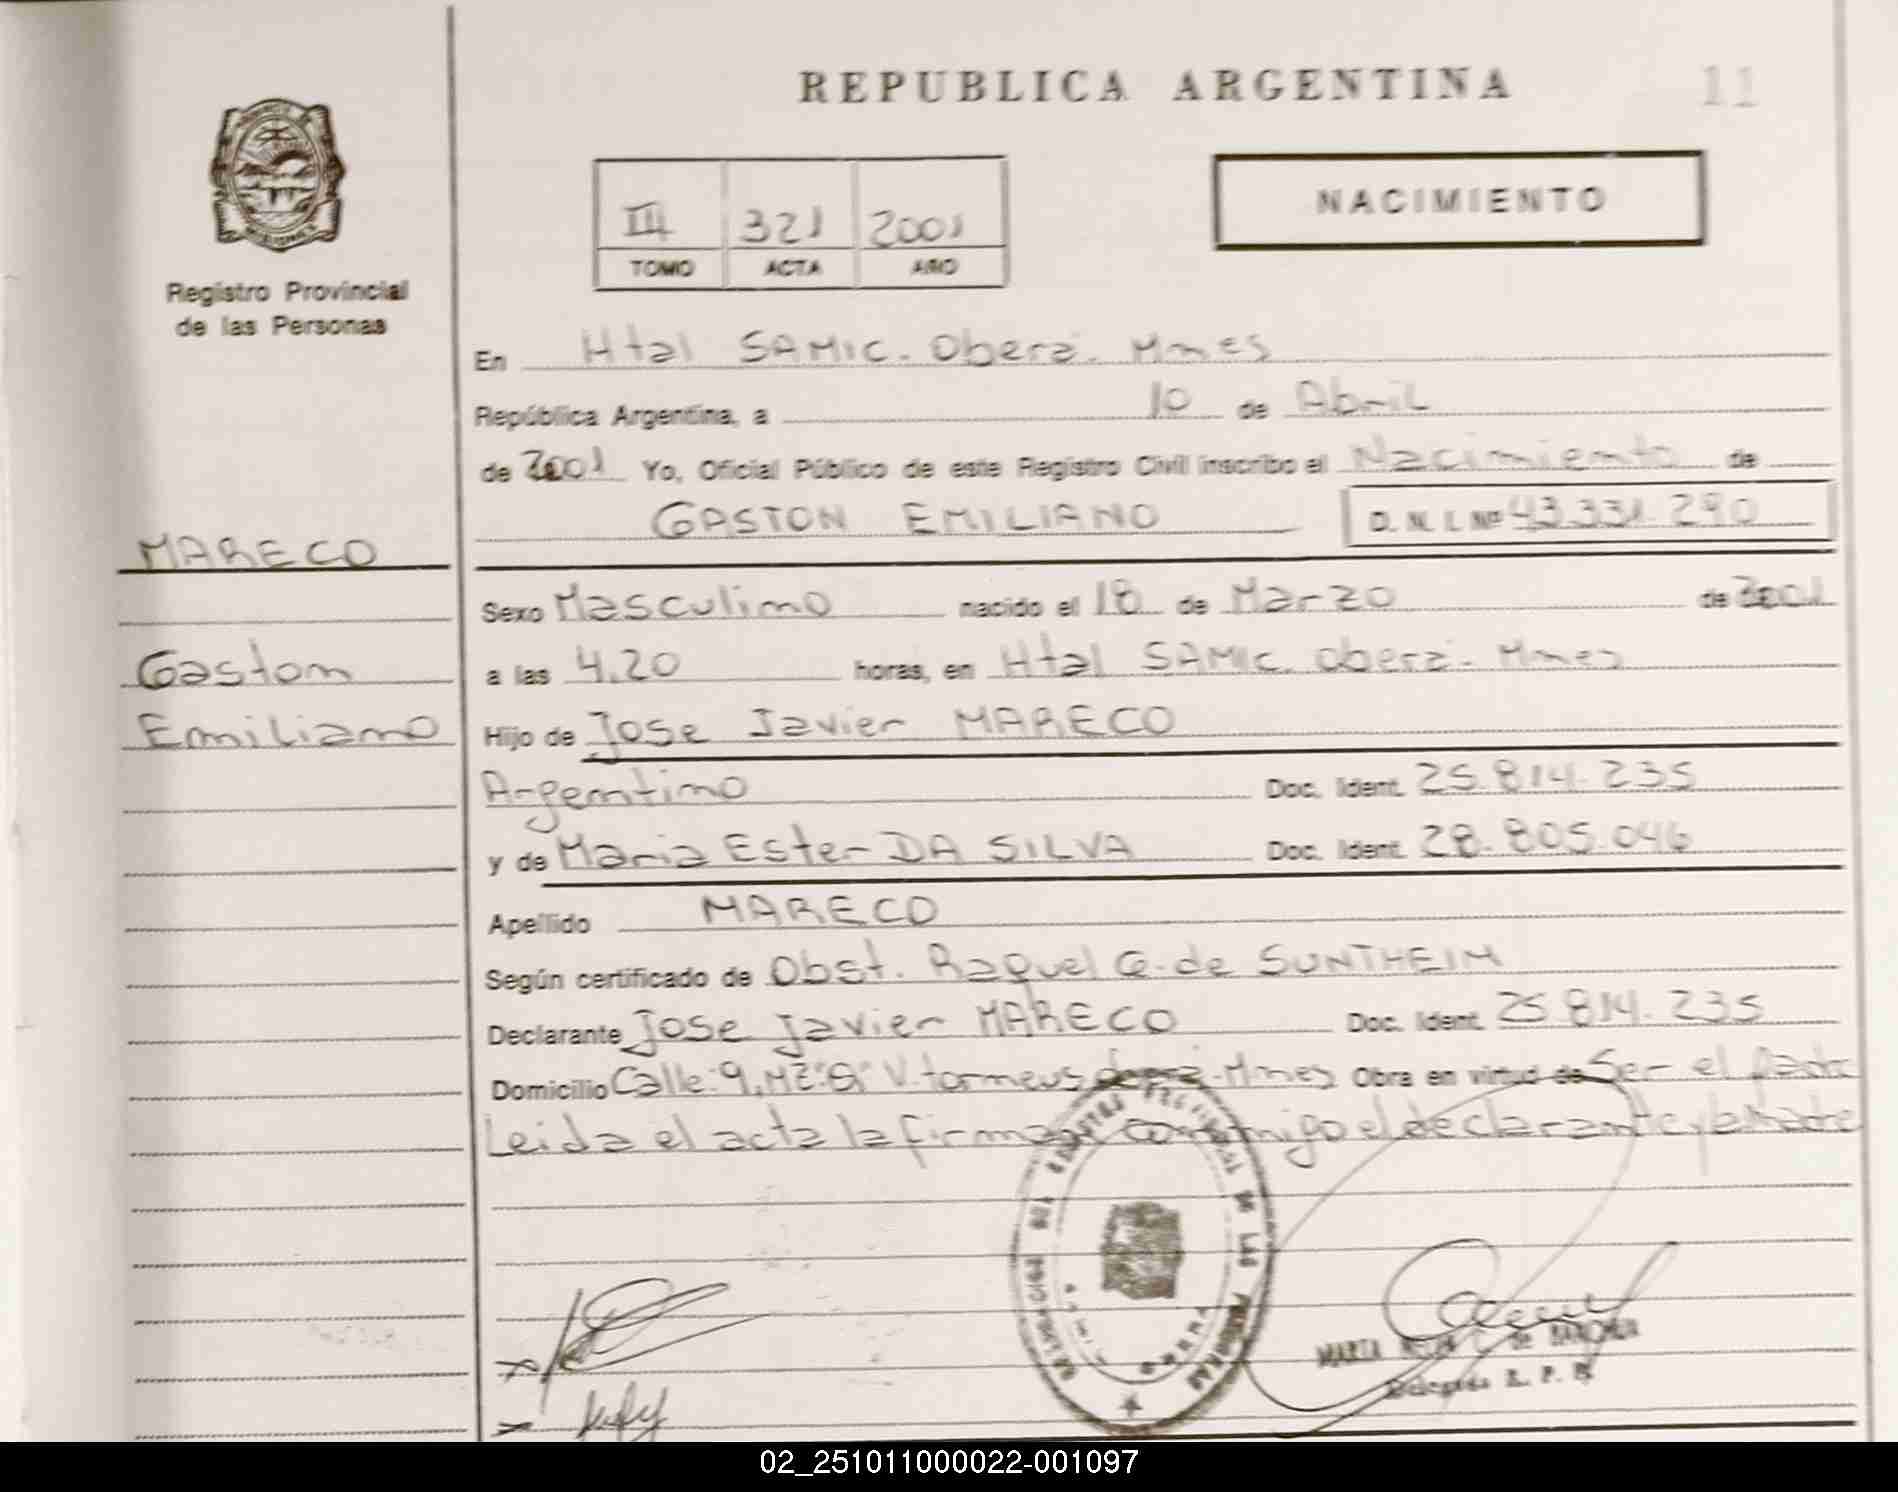 REPUBLICA ARGENTINA
11
III 321 2001
TOMO ACTA AÑO
NACIMIENTO
MISIONES
Registro Provincial
de las Personas
En Htal SAMIC. Oberá. Mnes
República Argentina, a 10 de Abril
de 2001 Yo, Oficial Público de este Registro Civil inscribo el Nacimiento de
GASTON EMILIANO D. N. I. Nº 43.331.290
MARECO
Sexo Masculino nacido el 18 de Marzo de 2001
Gaston
a las 4.20 horas, en Htal SAMIC. Oberá. Mnes
Emiliano
Hijo de Jose Javier MARECO
Argentino Doc. Ident. 25.814.235
y de Maria Ester DA SILVA Doc. Ident. 28.805.046
Apellido MARECO
Según certificado de Obst. Raquel G. de SUNTHEIM
Declarante Jose Javier MARECO Doc. Ident. 25.814.235
Domicilio Calle: 9, MZ: V. Mnes Obra en virtud de Ser el Padre
Leida el acta la firman conmigo el declarante y la Madre
REGISTRO PROVINCIAL DE LAS PERSONAS
MARTA C. de
Delegada R. P. P.
02_251011000022-001097